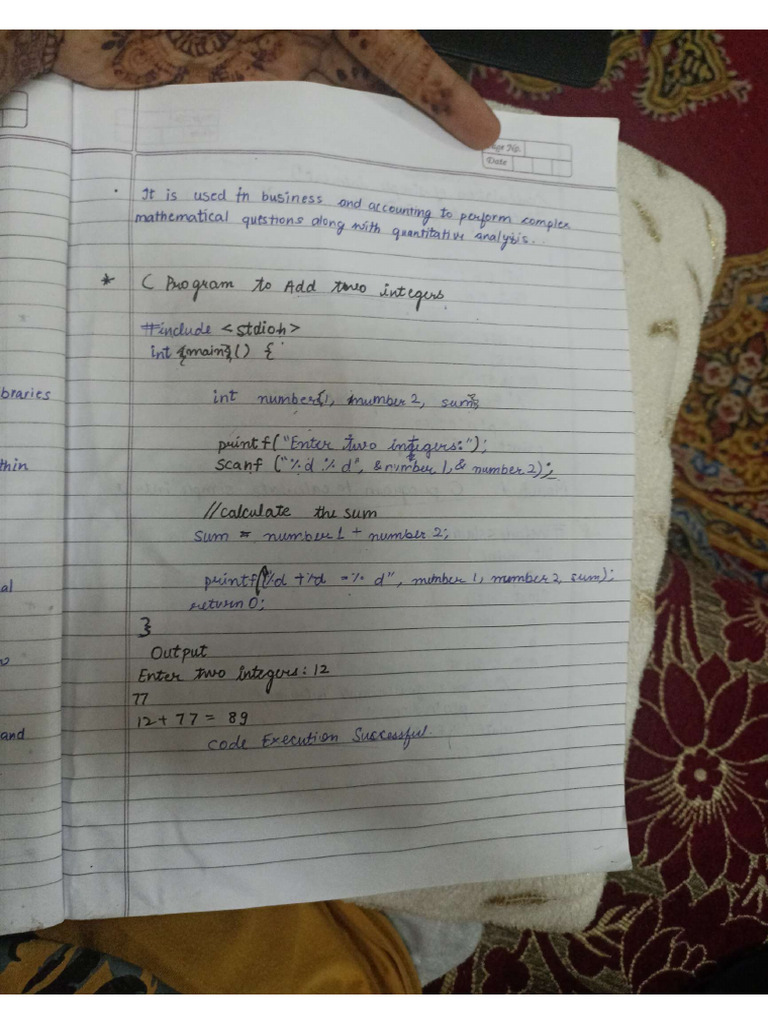 Page No.
Date
braries
thin
al
and
. It is used in business and accounting to perform complex
mathematical questions along with quantitative analysis..
* C Program to Add two integers
#include <stdioh>
int {main}() {
int number{1, number 2, sum;
printf("Enter two integers:");
scanf ("%d %d", &number 1, & number 2);
//calculate the sum
sum = number 1 + number 2;
printf("%d +%d =% d", number 1, number 2, sum);
return 0;
}
Output
Enter two integers: 12
77
12+ 77 = 89
Code Execution Successful.